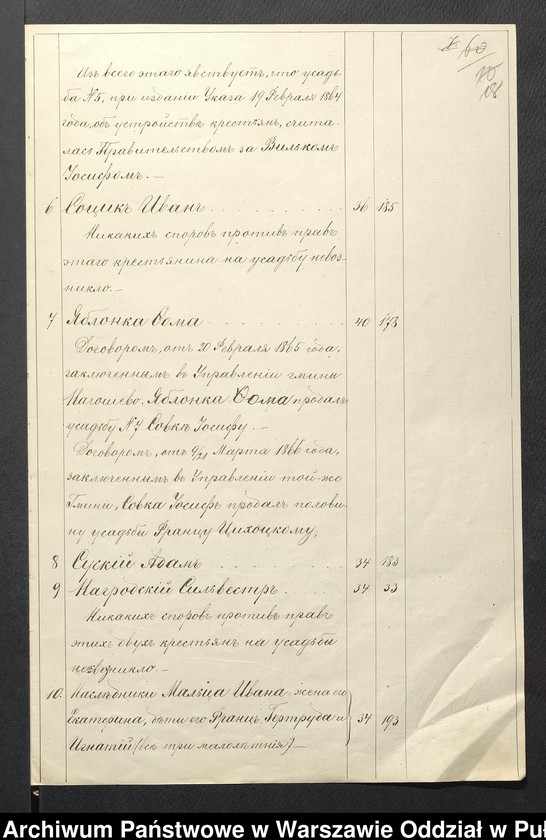 60
18
Изъ всего этаго явствуетъ, что усадь-
ба № 5, при изданіи Указа 19 Февраля 1864
года, объ устройствѣ крестьянъ, счита-
лась Правительствомъ за Вилькомъ
Іосифомъ. —
6 Социкъ Иванъ . . . . . 36 185
Никакихъ споровъ противъ правъ
этаго крестьянина на усадьбу невоз-
никло. —
7 Яблонка Ѳома . . . . . 40 178
Договоромъ, отъ 20 Февраля 1865 года,
заключеннымъ въ Управленіи гмины
Нагошево, Яблонка Ѳома продалъ
усадьбу № 7 Совкѣ Іосифу. —
Договоромъ, отъ 9/21 Марта 1866 года,
заключеннымъ въ Управленіи той-же
Гмины, Совка Іосифъ продалъ полови-
ну усадьбы Францу Цихоцкому.
8 Сускій Адамъ . . . . . 34 183
9 Нагродскій Сильвестръ . . . . . 34 33
Никакихъ споровъ противъ правъ
этихъ двухъ крестьянъ на усадьбы
невозникло. —
10. Наслѣдники Мальца Ивана жена его
Екатерина, дѣти его Францъ, Гертруда и 34 193
Игнатій (всѣ три малолѣтнія) —
Archiwum Państwowe w Warszawie Oddział w Pu